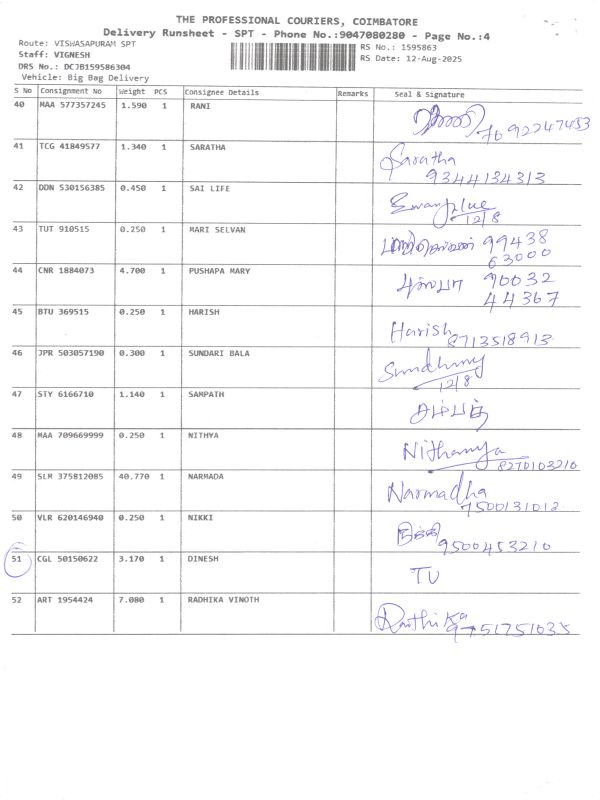 THE PROFESSIONAL COURIERS, COIMBATORE
Delivery Runsheet - SPT - Phone No.:9047080280 - Page No.:4
Route: VISWASAPURAM SPT
RS No.: 1595863
Staff: VIGNESH
RS Date: 12-Aug-2025
DRS No.: DCJB159586304
Vehicle: Big Bag Delivery
S No Consignment No Weight PCS Consignee Details Remarks Seal & Signature
40 MAA 577357245 1.590 1 RANI
7692247433
41 TCG 41849577 1.340 1 SARATHA
Saratha
9344134313
42 DDN 530156385 0.450 1 SAI LIFE
12/8
43 TUT 910515 0.250 1 MARI SELVAN
மாரிசெல்வன் 99438
63000
44 CNR 1884073 4.700 1 PUSHAPA MARY
புஸ்பா 90032
44367
45 BTU 369515 0.250 1 HARISH
Harish
8713518913
46 JPR 503057190 0.300 1 SUNDARI BALA
12/8
47 STY 6166710 1.140 1 SAMPATH
சம்பத்
48 MAA 709669999 0.250 1 NITHYA
8270103210
49 SLM 375812085 40.770 1 NARMADA
Narmadha
7500131012
50 VLR 620146940 0.250 1 NIKKI
நிக்கி
9500453210
51 CGL 50150622 3.170 1 DINESH
TV
52 ART 1954424 7.080 1 RADHIKA VINOTH
9751751035